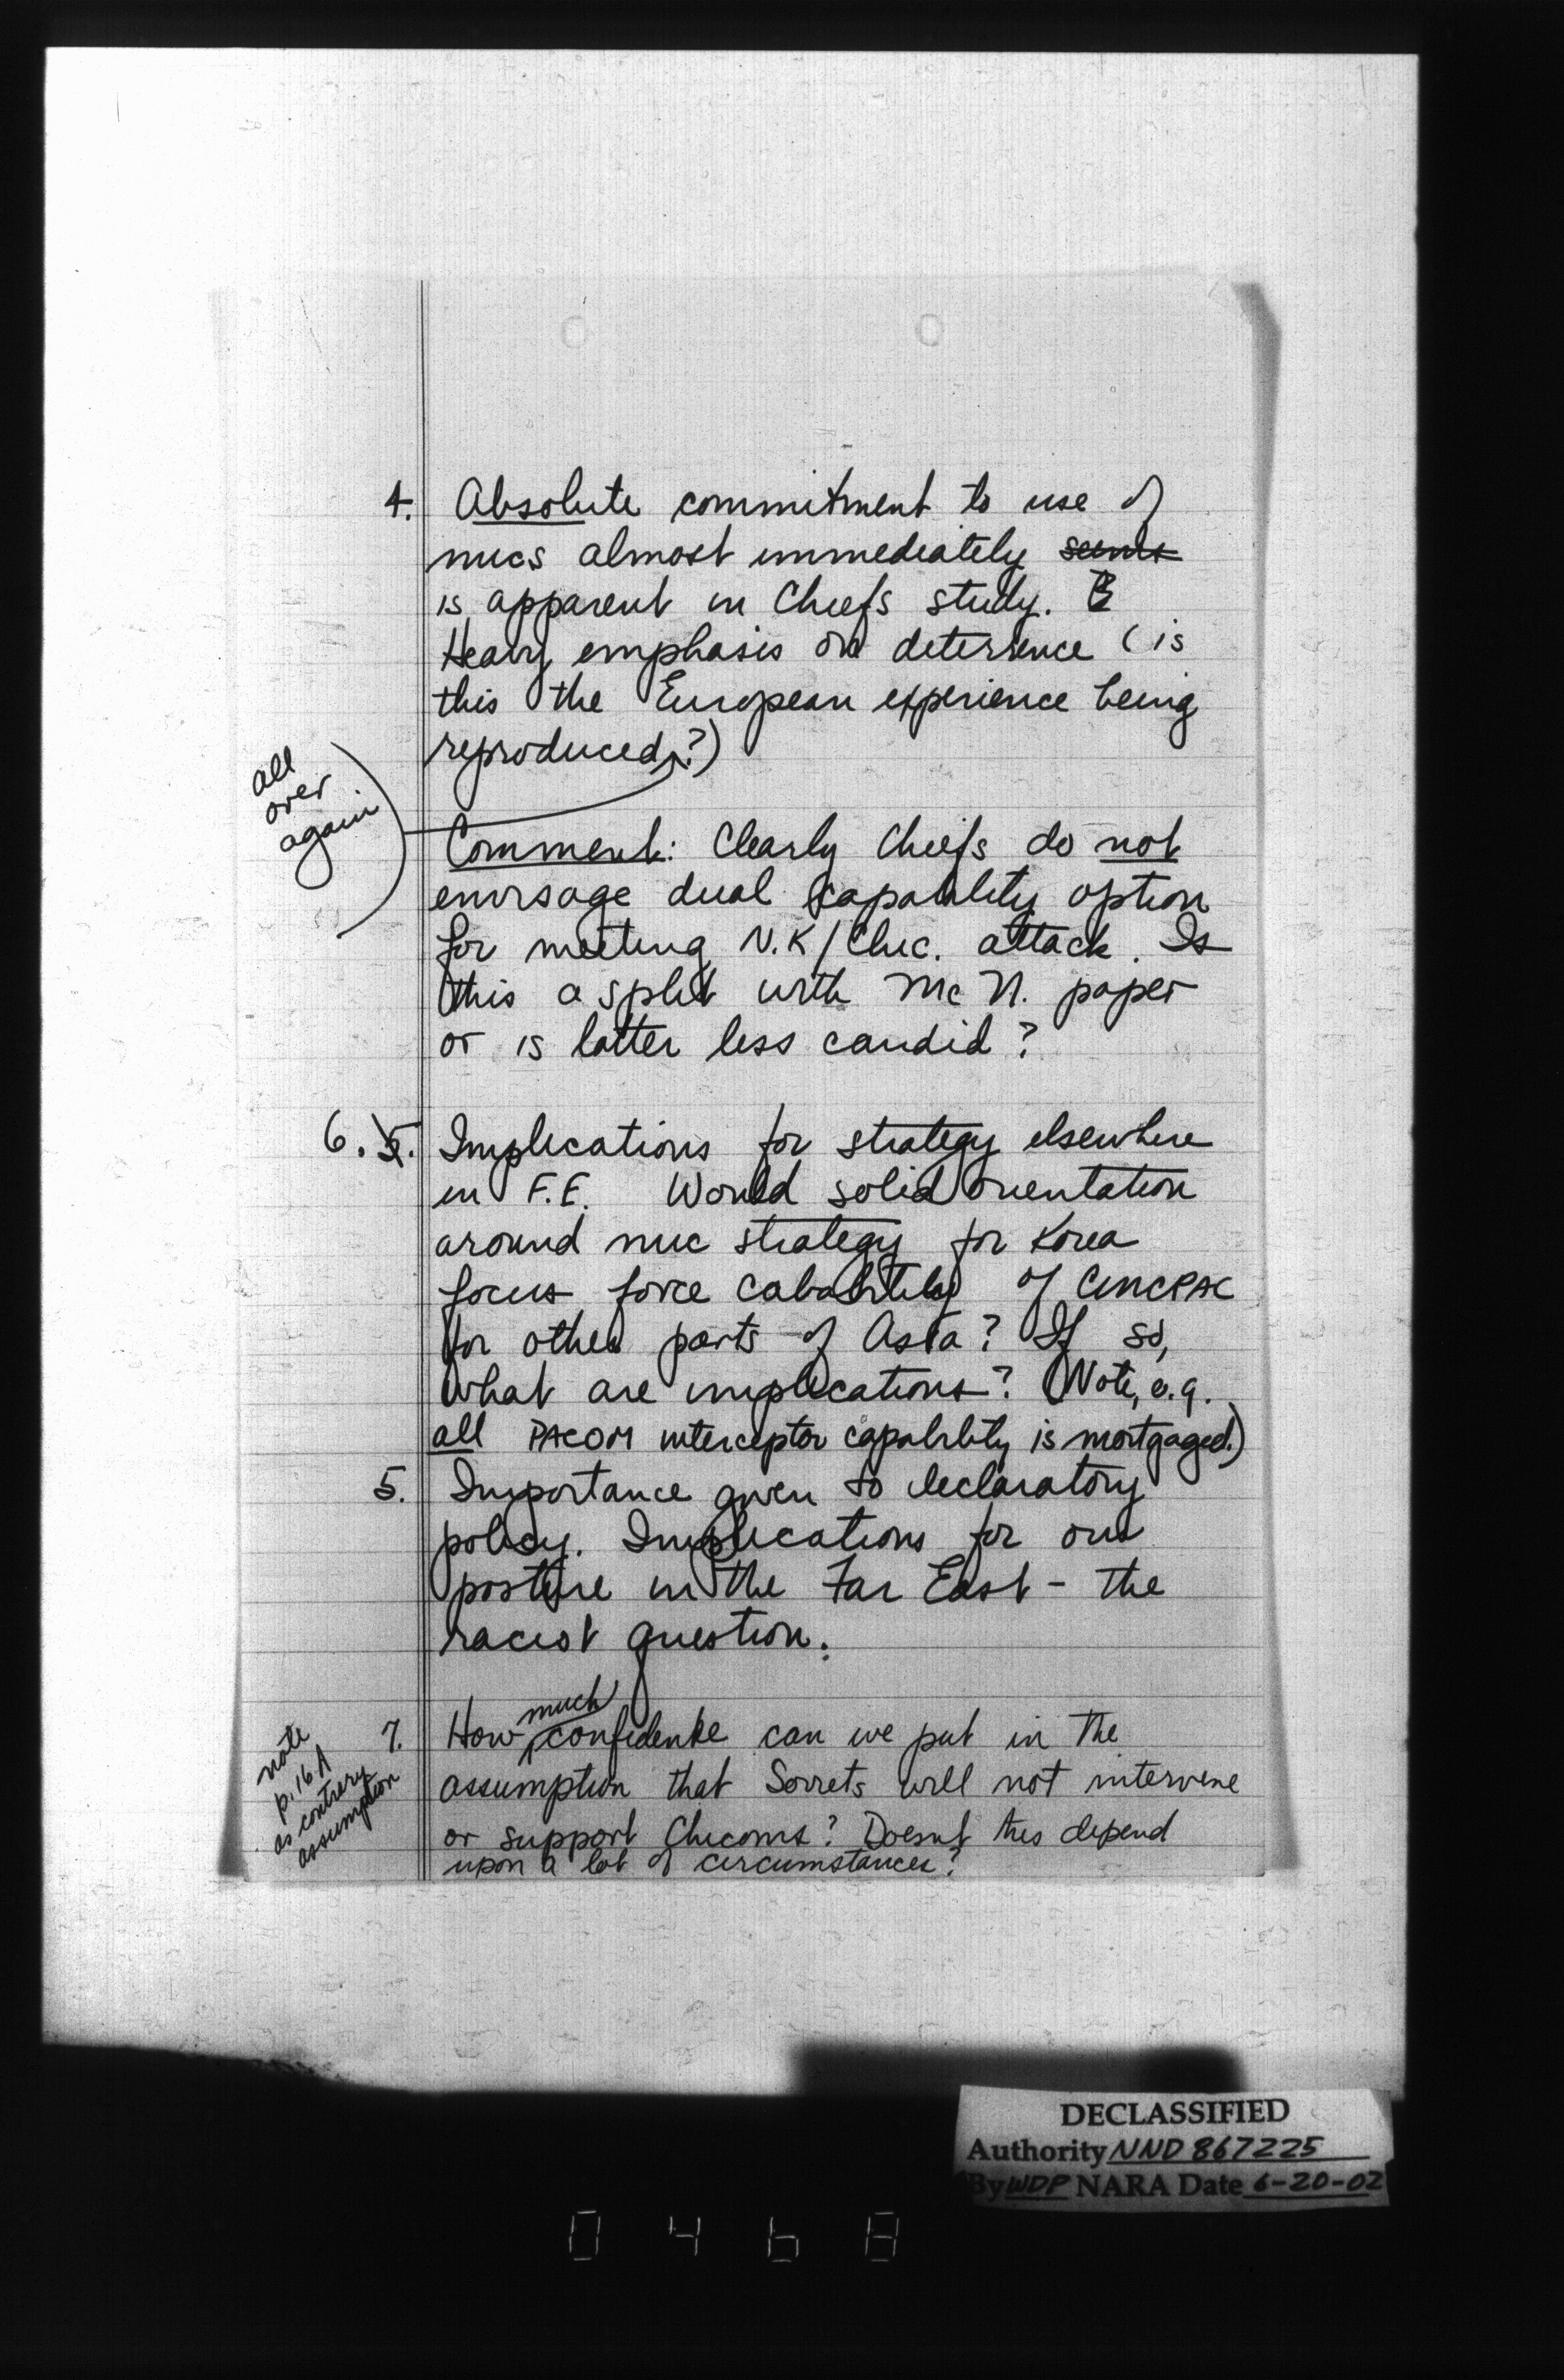 4. Absolute commitment to use of
nucs almost immediately seems
is apparent in Chiefs study.
Heavy emphasis on deterrence (is
this the European experience being
reproduced ?)
all
over
again
Comment: Clearly Chiefs do not
envisage dual capability option
for meeting N.K/Chic. attack. Is
this a split with McN. paper
or is latter less candid?
6. 5. Implications for strategy elsewhere
in F.E. Would solid orientation
around nuc strategy for Korea
focus force cabability of CINCPAC
for other parts of Asia? If so,
what are implications? (Note, e.g.
all PACOM interceptor capability is mortgaged.)
5. Importance given to declaratory
policy. Implications for our
posture in the Far East - the
racist question.
note
p. 16A
as contrary
assumption
7. How much confidence can we put in the
assumption that Soviets will not intervene
or support Chicoms? Doesnt this depend
upon a lot of circumstances?
DECLASSIFIED
Authority NND 867225
By WDP NARA Date 6-20-02
0468